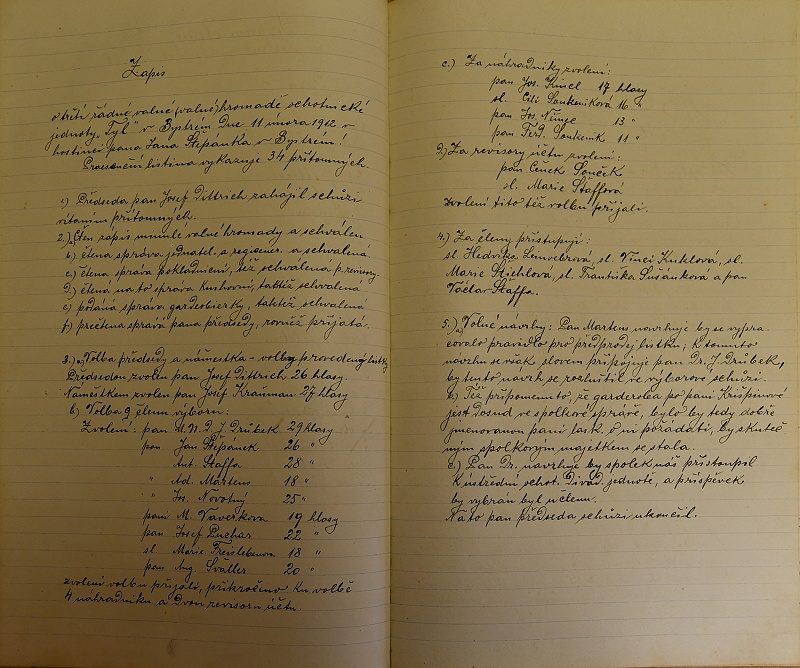 Zápis
o třetí řádné valné (valné) hromadě ochotnické
jednoty "Tyl" v Bystrém dne 11 února 1912 v
hostinci pana Jana Štěpánka v Bystrém!
Praesenční listina vykazuje 34 přítomných.
1) Předseda pan Josef Dittrich zahájil schůzi
vítáním přítomných.
2.) a) čten zápis minulé valné hromady a schválen
b) čtena správa jednatel. a režisér. a schválená.
c) čtena správa pokladniční, též schválena p. revisory.
d) čtená na to správa knihovní, taktéž schválená
e) podána správa garderobierky, taktéž schválená
f) přečtena správa pana předsedy, rovněž přijatá.
3.) a) Volba předsedy a náměstka - volby provedeny lístky
Předsedou zvolen pan Josef Dittrich 26 hlasy.
Náměstkem zvolen pan Josef Krauman 27 hlasy
b) Volba 9 členů výboru:
Zvoleni: pan M.U.D. J. Drůbek 29 hlasy
pan Jan Štěpánek 26 "
Ant. Staffa 28 "
" Ad. Martens 18 "
" Jos. Novotný 25 "
paní M. Vaverková 19 hlasy
pan Josef Puchar 22 "
sl. Marie Freislebenova 18 "
pan Aug. Šváller 20 "
zvolení volbu přijali, přikročeno ku volbě
4 náhradníků a dvou revisorů účtů.
c.) Za náhradníky zvoleni:
pan Jos. Kincl 17 hlasy
sl. Cili Soukeníková 16 "
pan Jos. Vincc 13 "
pan Ferd. Soukeník 11 "
d.) Za revisory účtů zvoleni:
pan Čeněk Souček
sl. Marie Staffová
Zvolení tito též volbu přijali.
4.) Za členy přistupují:
sl. Hedvika Leinvebrová, sl. Vinci Kuklová, sl.
Marie Stiehlová, sl. Františka Sušánková a pan
Václav Staffa.
5.) a) Volné návrhy: Pan Martens navrhuje by se vypra-
covalo pravidlo pro předprodej lístků, k tomuto
návrhu se však slovem připojuje pan Dr. J. Drůbek,
by tento návrh se rozluštil ve výborové schůzi.
b) Též připomenuto, že garderoba po paní Krišpínové
jest dosud, ve spolkové správě, bylo by tedy dobře
jmenovanou paní lask. o ni požádati, by skuteč
ným spolkovým majetkem se stala.
c) Pan Dr. navrhuje by spolek náš přistoupil
k ústřední ochot. divad. jednotě, a příspěvek
by vybrán byl u členů.
Na to pan předseda schůzi ukončil.